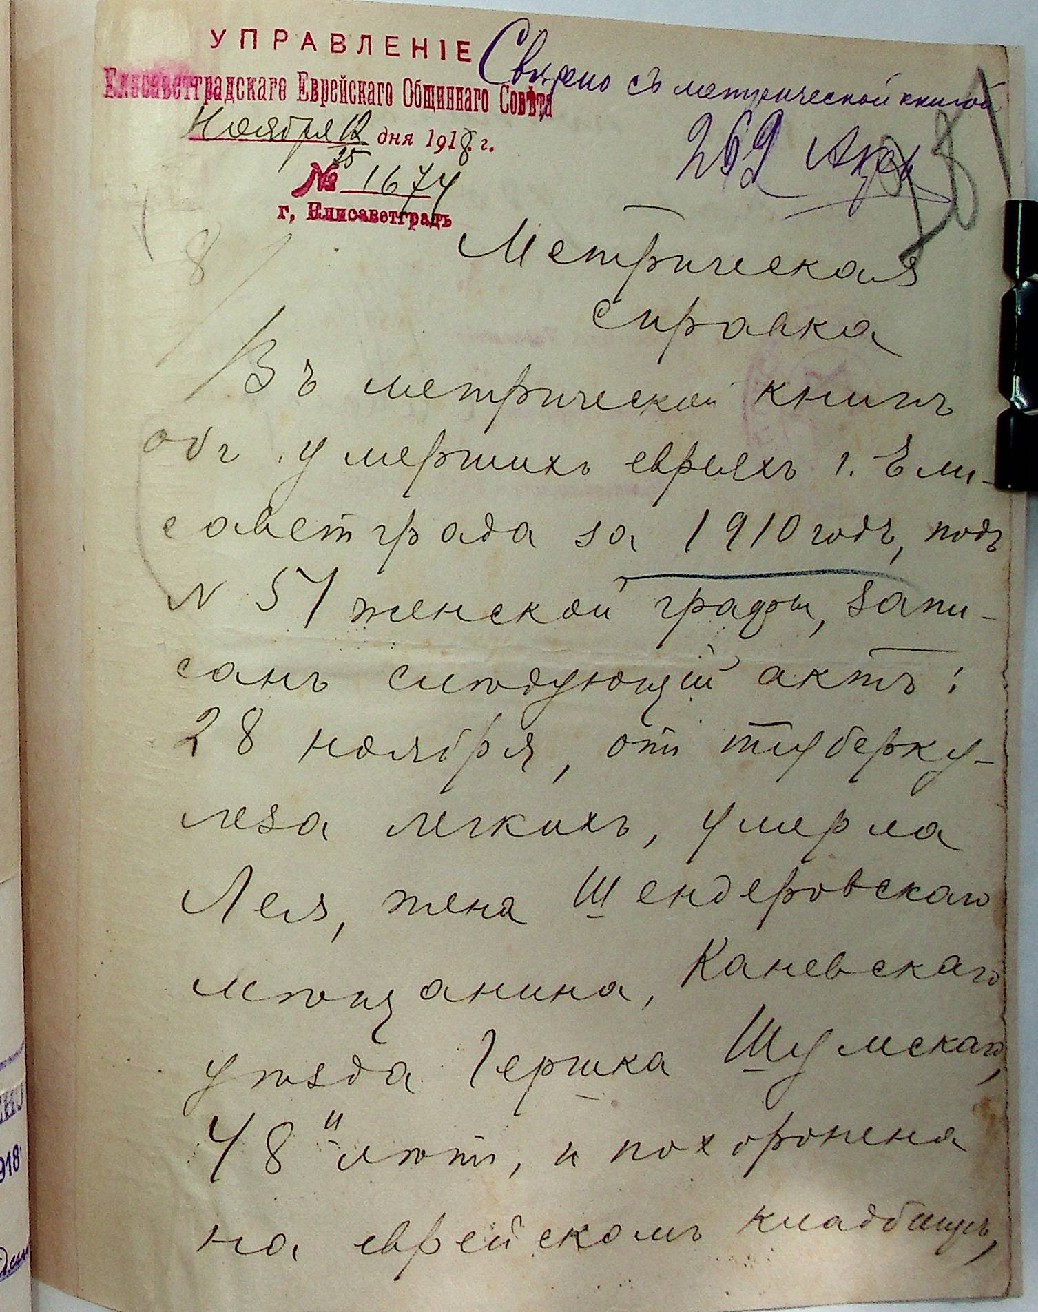 УПРАВЛЕНІЕ
Елисаветградскаго Еврейскаго Общиннаго Совѣта
Ноября 12 дня 1918 г.
25
№ 1674
г. Елисаветградъ
Свѣрено съ метрической книгой
262
Метрическая
справка
Въ метрической книгѣ
объ умершихъ евреяхъ г. Ели-
саветграда за 1910 годъ, подъ
N 51 женской графы, запи-
санъ слѣдующій актъ:
28 ноября, отъ туберку-
леза легкихъ, умерла
Лея, жена Шендеровскаго
мѣщанина, Каневскаго
уѣзда Гершка Шумскаго,
48 "лѣтъ, и похоронена
на еврейскомъ кладбищѣ,
918